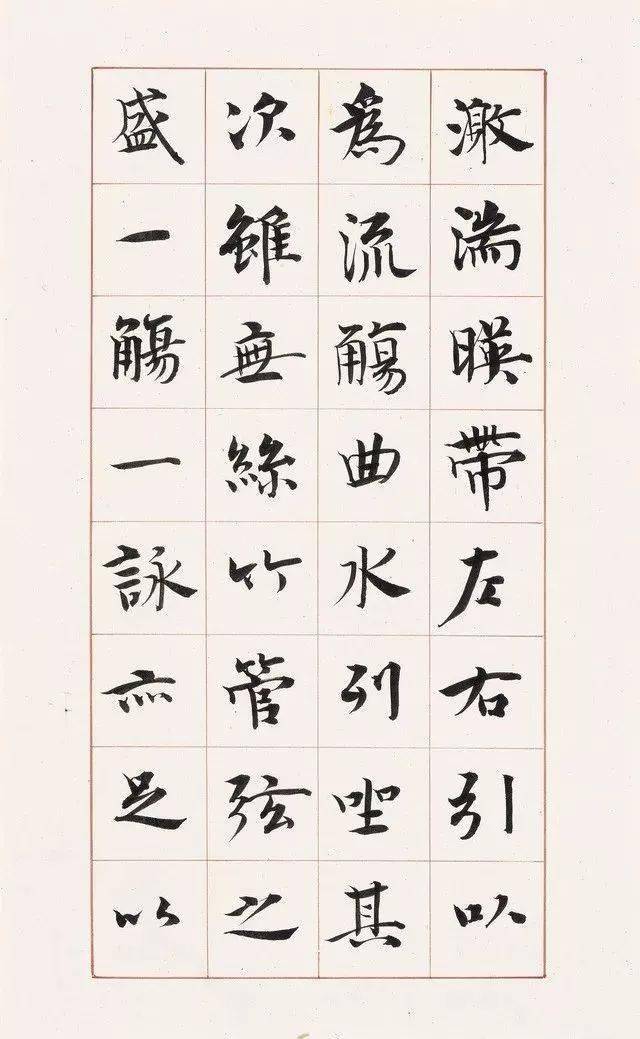 激湍暎帶左右引以
為流觴曲水列坐其
次雖無絲竹管弦之
盛一觴一詠亦足以